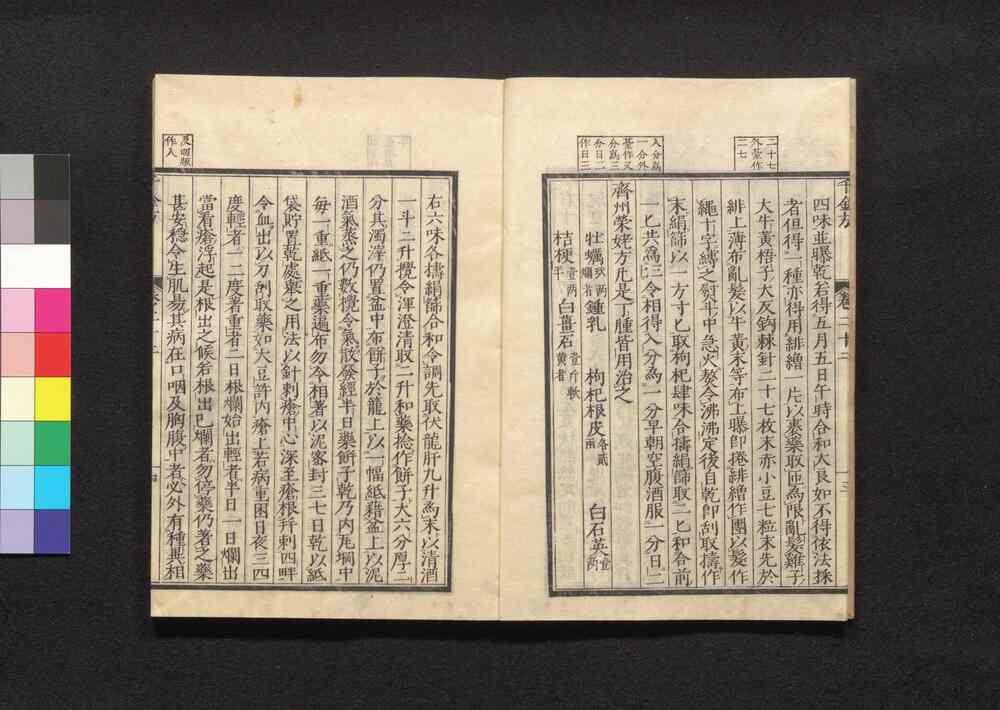 二十七
外臺作
二七
入分爲
一分外
臺作又
分爲三
分日二
作日三
四味並曝乾若得五月五日午時合和大良如不得依法採
者但得一種亦得用緋繒一片以裹藥取匝爲限亂髮雞子
大牛黃梧子大反鉤棘針二十七枚末赤小豆七粒末先於
緋上薄布亂髮以牛黃末等布上曝卽捲緋繒作團以髮作
繩十字縛之熨斗中急火熬令沸沸定後自乾卽刮取擣作
末絹篩以一方寸匕取枸杞肆味合擣絹篩取二匕和合前
一匕共爲三令相得入分爲一分早朝空腹酒服一分日二
齊州榮姥方凡是丁腫皆用治之
牡蠣玖兩爛者 鍾乳 枸杞根皮各貳兩 白石英壹兩
桔梗壹兩半 白薑石壹斤軟黃者
右六味各擣絹篩合和令調先取伏龍肝九升爲末以清酒
一斗二升攪令渾澄清取二升和藥捻作餅子大六分厚二
分其濁滓仍置盆中布餅子於籠上以一幅紙藉盆上以泥
酒氣蒸之仍數攪令氣散發經半日藥餅子乾乃內瓦坩中
每一重紙一重藥遍布勿令相著以泥密封三七日乾以紙
袋貯置乾處舉之用法以針刺瘡中心深至瘡根幷刺四畔
令血出以刀刮取藥如大豆許內瘡上若病重困日夜三四
度輕者一二度著重者二日根爛始出輕者半日一日爛出
當看瘡浮起是根出之候若根出已爛者勿停藥仍著之藥
甚安穩令生肌易其病在口咽及胸腹中者必外有種異相